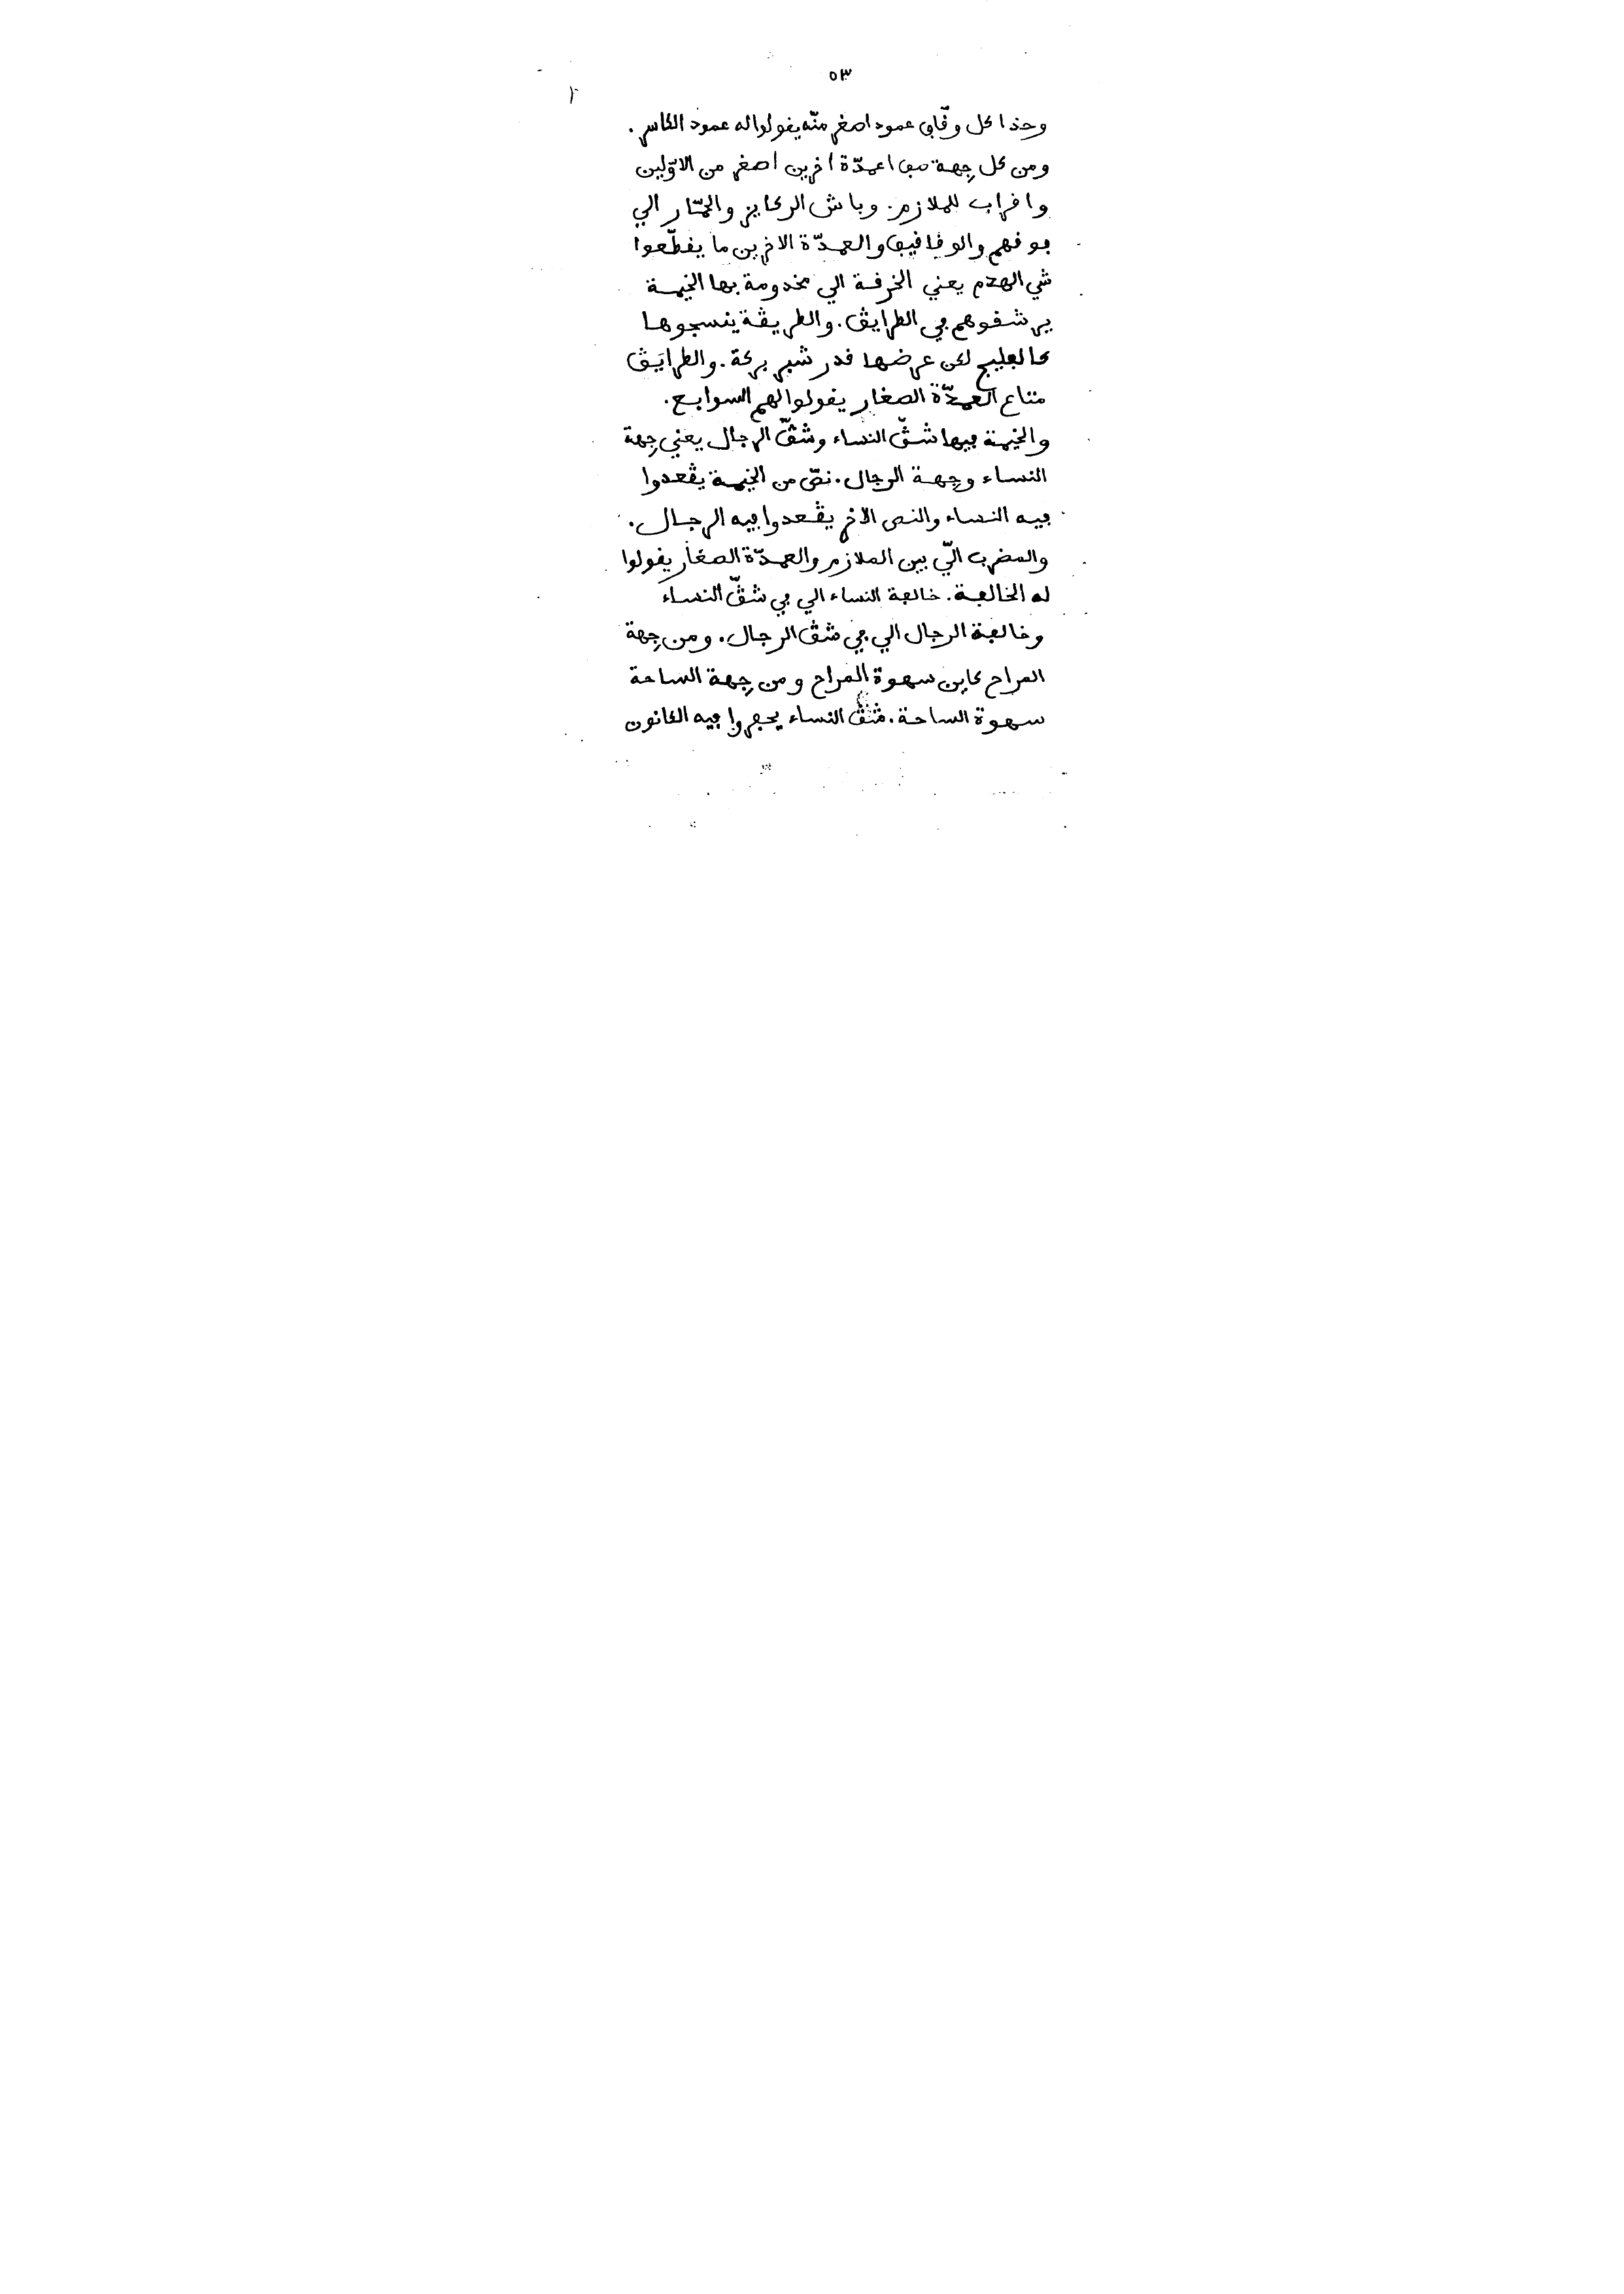 ٥٣
وحذا كل وقّاف عمود اصغر منّه يقولوا له عمود الكاس.
ومن كل جِهة صف اعمدّة اخرين اصغر من الاوّلين
واقراب للملازم. وباش الركايز والحمّار الي
فوقهم والوقاقيف والعمدّة الاخرين ما يقطّعوا
شي الهدم يعني الخرقة الي مخدومة بها الخيمة
يرشقوهم في الطرايڨ. والطريڨة ينسجوها
كالفليج لكن عرضها قدر شبر بركة. والطرايڨ
متاع العمدّة الصغار يقولوا لهم السوابع.
والخيمة فيها شڨّ النساء وشڨّ الرجال يعني جِهة
النساء وجِهة الرجال. نصّ من الخيمة يڨعدوا
فيه النساء والنص الاخر يڨعدوا فيه الرجال.
والمضرب الّي بين الملازم والعمدّة الصغار يقولوا
له الخالفة. خالفة النساء الي في شڨّ النساء
وخالفة الرجال الي في شڨ الرجال. ومن جِهة
المراح كاين سهوة المراح ومن جِهة الساحة
سهوة الساحة. شڨ النساء يحفروا فيه الكانون